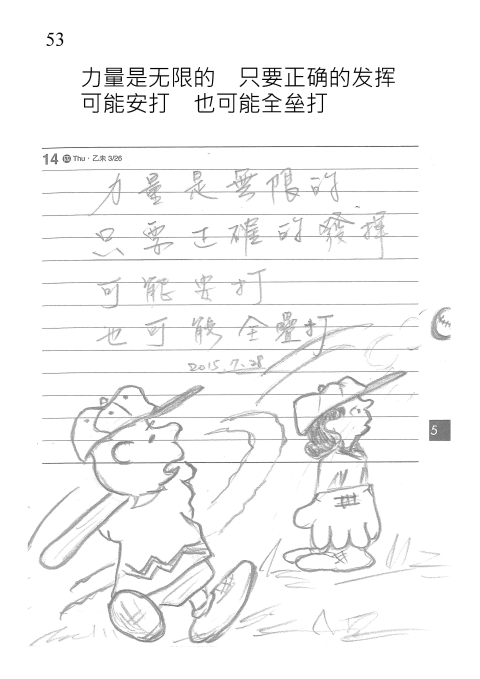 53
力量是无限的　只要正确的发挥
可能安打　也可能全垒打
14 四 Thu · 乙未 3/26
力量是無限的
只要正確的發揮
可能安打
也可能全壘打
2015.7.28
5